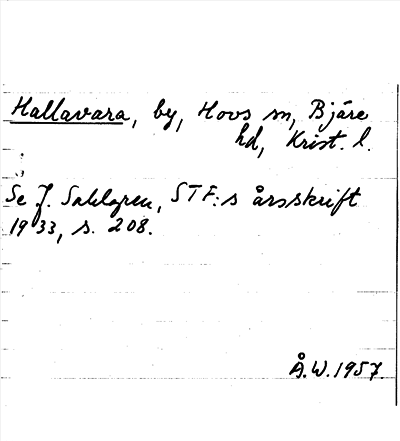 Hallavara, by, Hovs sn, Bjäre
hd, Krist. l.
Se J. Sahlgren, STF:s årsskrift
1933, s. 208.
Å.W. 1957.